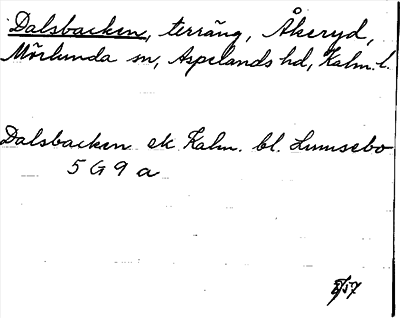 Dalsbacken, terräng, Åkeryd,
Mörlunda sn, Aspelands hd, Kalm. l.
Dalsbacken ek Kalm. bl.
5 G 9 a